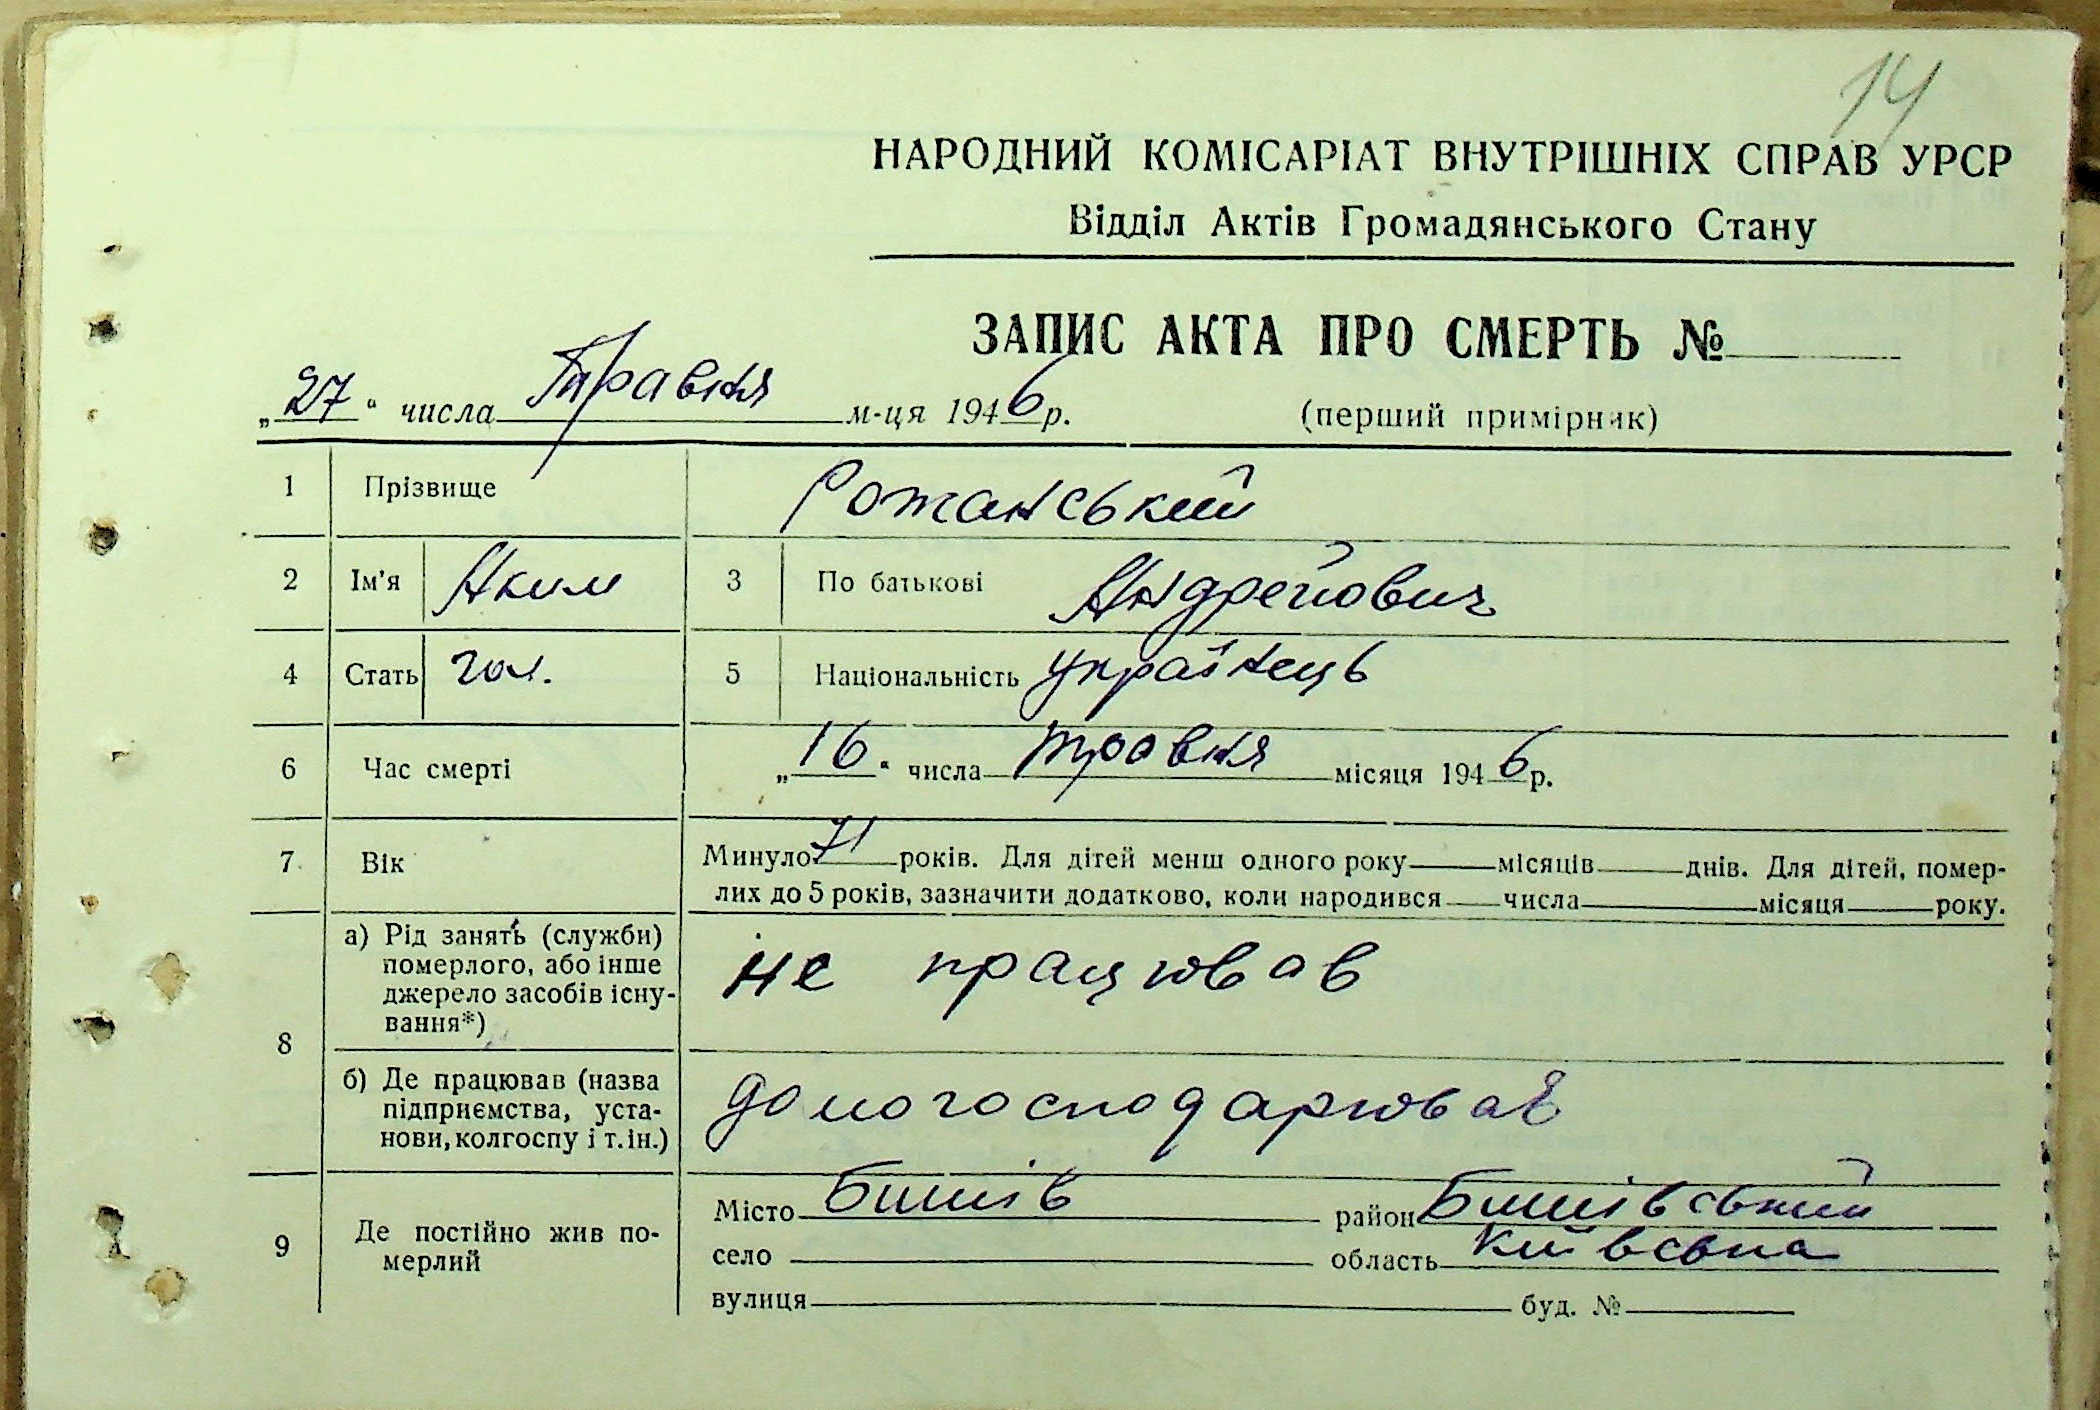 14
НАРОДНИЙ КОМІСАРІАТ ВНУТРІШНІХ СПРАВ УРСР
Відділ Актів Громадянського Стану
ЗАПИС АКТА ПРО СМЕРТЬ №
„27“ числа Травня м-ця 1946 р. (перший примірник)
1 Прізвище Рожанський
2 Ім'я Аким 3 По батькові Андрейович
4 Стать чол. 5 Національність українець
6 Час смерті „16“ числа травня місяця 1946 р.
7 Вік Минуло 71 років. Для дітей менш одного року місяців днів. Для дітей, помер-
лих до 5 років, зазначити додатково, коли народився числа місяця року.
8 а) Рід занять (служби) померлого, або інше джерело засобів існу-
вання*) не працював
б) Де працював (назва підприємства, уста-
нови, колгоспу і т. ін.) домогосподарював
9 Де постійно жив по-
мерлий Місто Бишів район Бишівський
село область Київська
вулиця буд. №